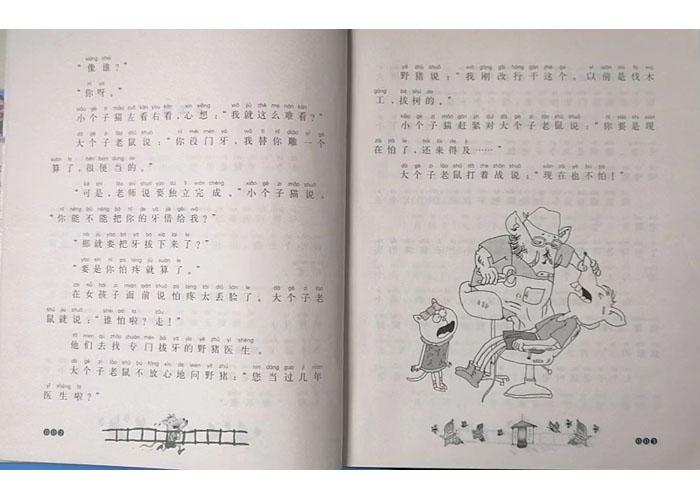 “像谁？”
“你呀。”
小个子猫左看右看，心想：“我就这么难看？”
大个子老鼠说：“你没门牙，我替你雕一个
算了，很便当的。”
“可是，老师说要独立完成。”小个子猫说，
“你能不能把你的牙借给我？”
“那就要把牙拔下来了？”
“要是你怕疼就算了。”
在女孩子面前说怕疼太丢脸了。大个子老
鼠就说：“谁怕啦？走！”
他们去找专门拔牙的野猪医生。
大个子老鼠不放心地问野猪：“您当过几年
医生啦？”
002
野猪说：“我刚改行干这个，以前是伐木
工，拔树的。”
小个子猫赶紧对大个子老鼠说：“你要是现
在怕了，还来得及……”
大个子老鼠打着战说：“现在也不怕！”
003